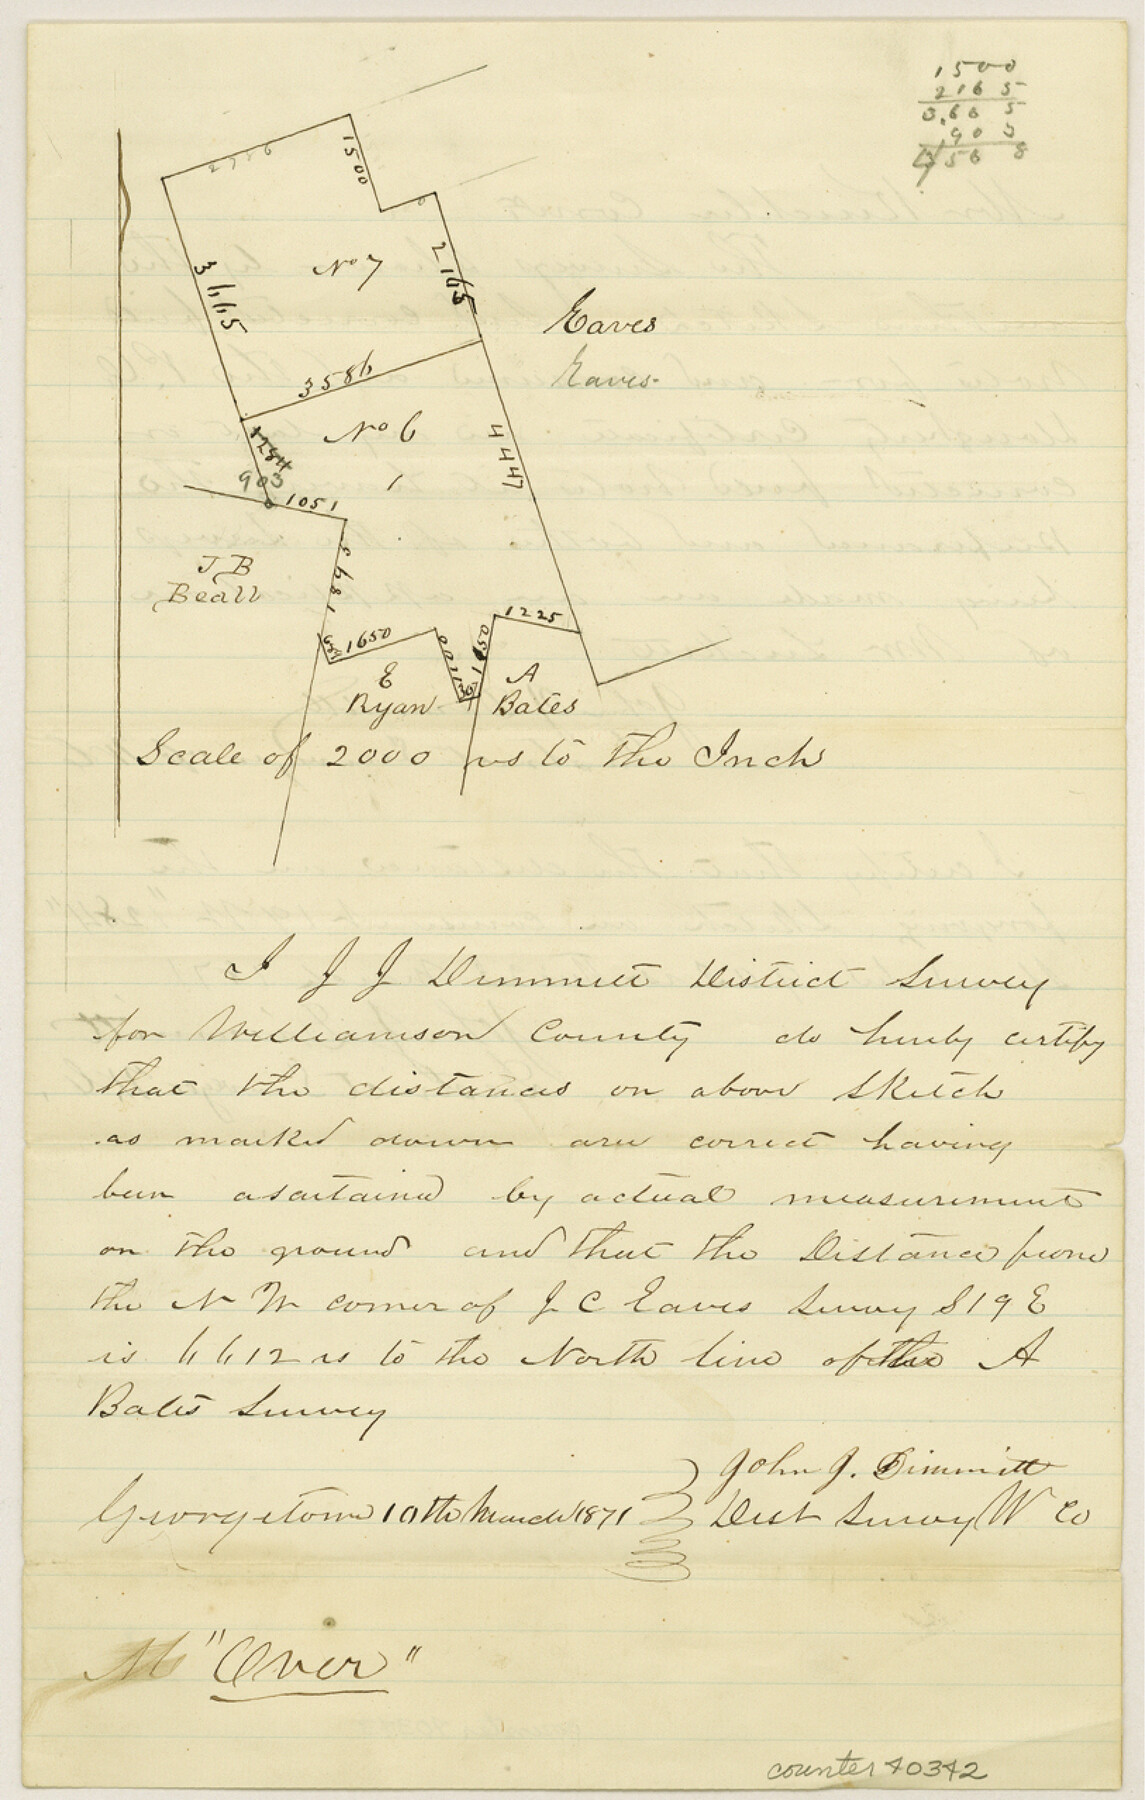 1500
2165
3,665
903
4568
1500
No 7
3665
2165
Eaves
Eaves
3586
No 6
1284
903
1051
4447
J B
Beall
1893
1650
1100
1050
1225
E
Ryan
A
Bates
Scale of 2000 vs to the Inch
I J J Dimmitt District Survey
for Williamson County do hereby certify
that the distances on above Sketch
as marked down are correct having
been asartained by actual measurement
on the ground and that the Distance from
the N W corner of J C Eaves Survey S 19 E
is 6612 vs to the North line of the A
Bates Survey
John J. Dimmitt
Georgetown 10th March 1871 Dist Survey W Co
"Over"
counter 40342